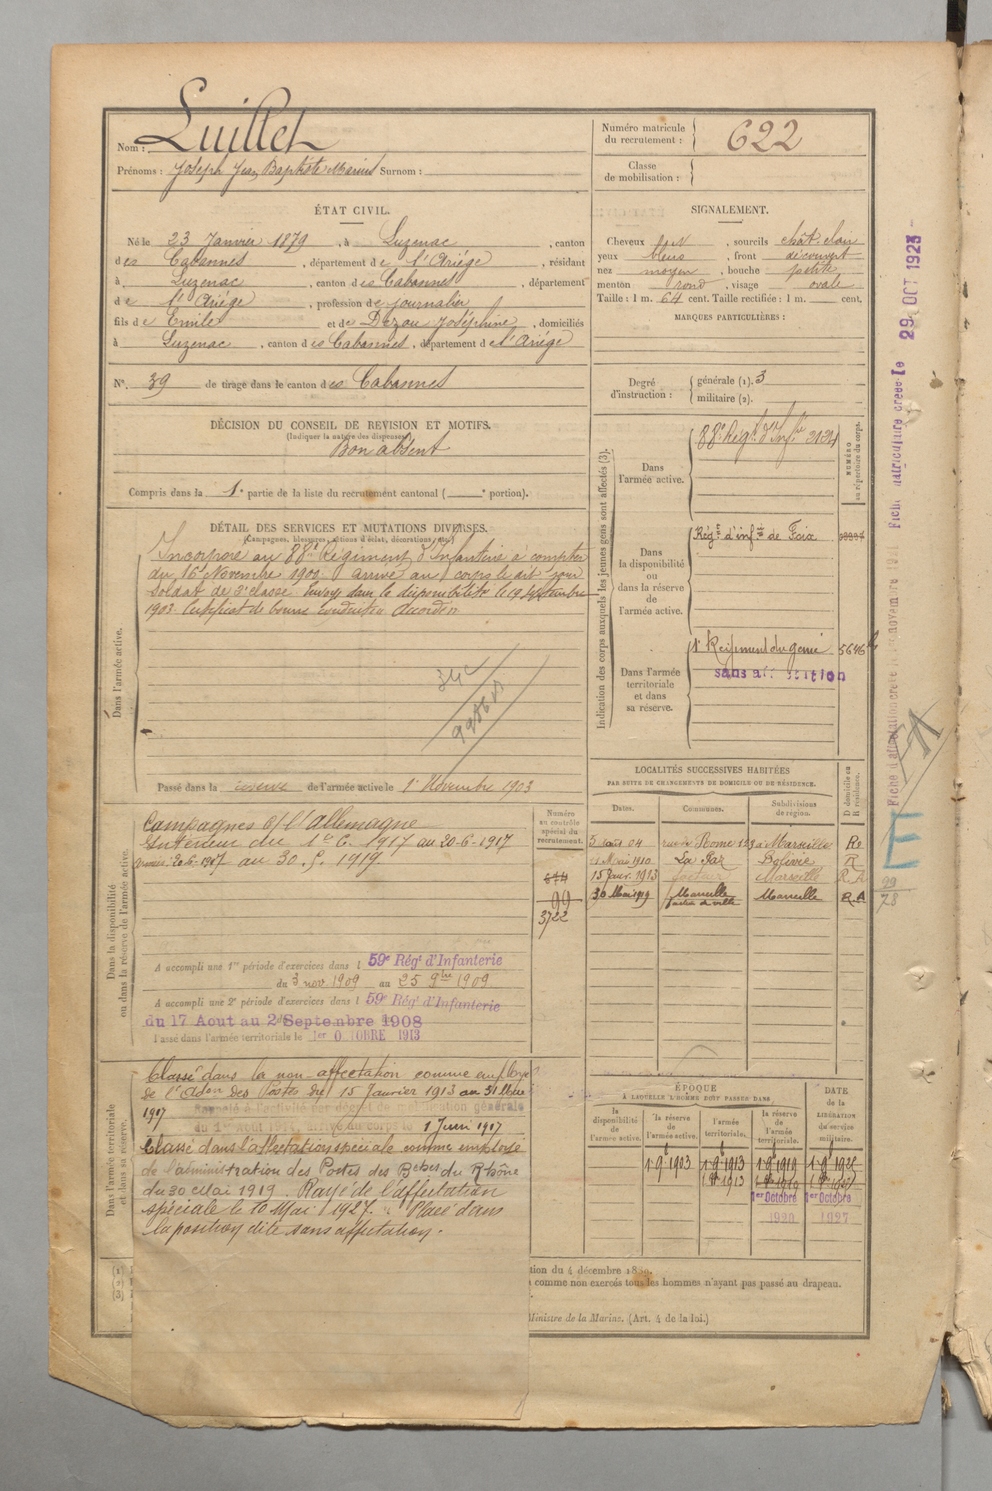 Nom : Luillet
Prénoms : Joseph Jean Baptiste Marius Surnom :
Numéro matricule du recrutement : 622
Classe de mobilisation :
ÉTAT CIVIL.
Né le 23 Janvier 1879, à Luzenac, canton
des Cabannes, département de l'Ariège, résidant
à Luzenac, canton des Cabannes, département
de l'Ariège, profession de journalier
fils de Emile et de Dezou Joséphine, domiciliés
à Luzenac, canton des Cabannes, département de l'Ariège
N° 39 de tirage dans le canton des Cabannes
SIGNALEMENT.
Cheveux , sourcils chât. clair
yeux bleus, front découvert
nez moyen, bouche petite
menton rond, visage ovale
Taille : 1 m. 64 cent. Taille rectifiée : 1 m. cent.
MARQUES PARTICULIÈRES :
Degré d'instruction : générale (1). 3
militaire (2).
DÉCISION DU CONSEIL DE REVISION ET MOTIFS.
(Indiquer la nature des dispenses)
Bon absent
Compris dans la 1e partie de la liste du recrutement cantonal ( e portion).
DÉTAIL DES SERVICES ET MUTATIONS DIVERSES.
(Campagnes, blessures, actions d'éclat, décorations, etc.)
Dans l'armée active.
Incorporé au 88e Régiment d'Infanterie à compter
du 16 Novembre 1900 arrivé au corps le dit jour
Soldat de 2e classe. Envoyé dans la disponibilité le 19 septembre
1903. Certificat de bonne conduite accordé
Passé dans la réserve de l'armée active le 1er Novembre 1903
Indication des corps auxquels les jeunes gens sont affectés (3).
NUMÉRO au répertoire du corps.
Dans l'armée active.
88e Régt d'Infie
Dans la disponibilité ou dans la réserve de l'armée active.
Régt d'infie de Foix
Dans l'armée territoriale et dans sa réserve.
1er Régiment du génie 5646
sans affectation
LOCALITÉS SUCCESSIVES HABITÉES
PAR SUITE DE CHANGEMENTS DE DOMICILE OU DE RÉSIDENCE.
Dates. Communes. Subdivisions de région. D domicile ou R résidence.
5 août 04 rue de Rome 123 à Marseille Re
Mai 1910 La Paz Bolivie R
15 Janv. 1913 facteur Marseille R.A
30 Mai 1919 Marseille Marseille R.A
Dans la disponibilité ou dans la réserve de l'armée active.
Campagnes c/ l'Allemagne
Intérieur du 1er 6. 1917 au 20-6-1917
Armées: 20-6-1917 au 30. 5. 1919
Numéro au contrôle spécial du recrutement.
99
3722
A accompli une 1re période d'exercices dans l 59e Régt d'Infanterie
du 3 nov 1909 au 25 9bre 1909
A accompli une 2e période d'exercices dans l 59e Régt d'Infanterie
du 17 Aout au 2 Septembre 1908
Passé dans l'armée territoriale le 1er OCTOBRE 1913
Dans l'armée territoriale et dans sa réserve.
Classé dans la non-affectation comme employé
de l'Adon des Postes du 15 Janvier 1913 au 31 Mai
1917 Rappelé à l'activité par décret de mobilisation générale
du 1er Août 1914, arrivé au corps le 1 Juin 1917
Classé dans l'affectation spéciale comme employé
de l'administration des Postes des Bches du Rhône
du 30 Mai 1919. Rayé de l'affectation
spéciale le 10 Mai 1927. Placé dans
la position dite sans affectation.
ÉPOQUE
A LAQUELLE L'HOMME DOIT PASSER DANS
la disponibilité de l'armée active. la réserve de l'armée active. l'armée territoriale. la réserve de l'armée territoriale.
DATE de la LIBÉRATION du service militaire.
1-9bre 1903 1-9bre 1913 1-9bre 1919
1er Octobre 1er Octobre
1920 1927
tion du 4 décembre 1889.
comme non exercés tous les hommes n'ayant pas passé au drapeau.
Ministre de la Marine. (Art. 4 de la loi.)
Fiche matricule créée le 29 OCT 1923